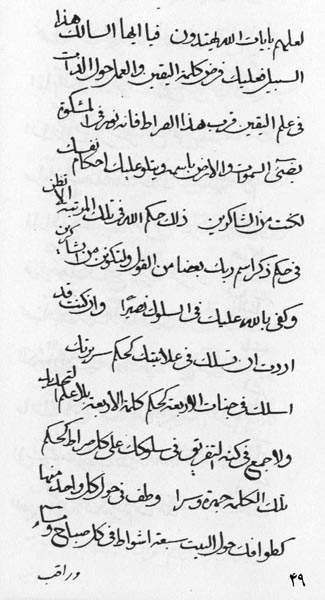 لعلهم بايات الله يهتدون فيا ايها السالك هذا
السبيل فعليك فرض كلمة اليقين والعمل حول الذات
في علم اليقين قرب هذا الصراط فانه نور في المشكوة
يضئ السموات والارض باسمه ويتلو عليك احكام نفسك
لكنت من الشاكرين ذلك حكم الله في تلك المرتبة الا تظن
في حكم ذكر اسم ربك بعضا من القول ولتكونن من الشاكرين
وكفى بالله عليك في السلوك نصيرا وان كنت قد
اردت ان تسلك في علانيتك كحكم سريرتك
اسلك في جنات الاربعة كحكم كلمة الاربعة بلا علم التحديد
ولا جمع في كنه التفريق في سلوكك على كل صراط كحكم
تلك الكلمة جهرة وسرا وطف في حول كل واحد منها
كطوافك حول البيت سبعة اشواط في كل صباح ومساء
وراقب
٤٩